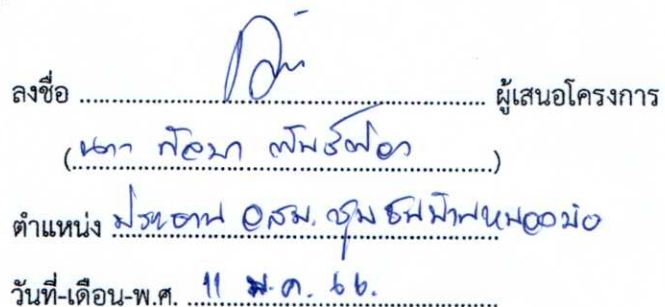 ลงชื่อ ........................ ผู้เสนอโครงการ
(นาง )
ตำแหน่ง ประธาน อสม. ชุมชนบ้านหนองบ่อ
วันที่-เดือน-พ.ศ. 11 ม.ค. 66.